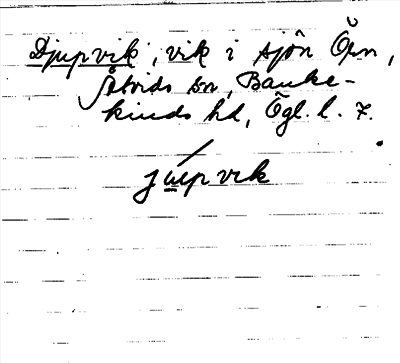 Djupvik, vik i sjön Ören,
Åtvids sn, Banke-
kinds hd, Ögl. l. 7.
júpvik